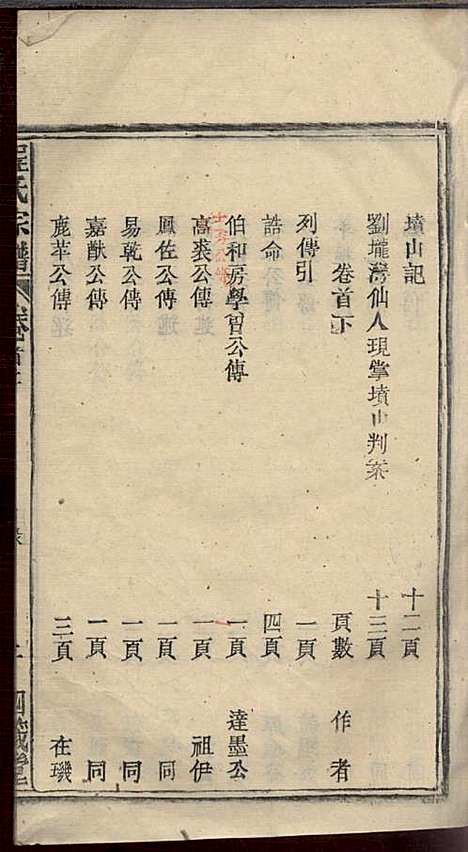 墳山記 十二頁
劉壠灣仙人現掌墳山判案 十三頁
卷首下 頁數 作者
列傳引 一頁
誥命 四頁
伯和房學曾公傳 一頁 達墨公
高裘公傳 一頁 祖伊
鳳佐公傳 一頁 同
易乾公傳 一頁 同
嘉猷公傳 一頁 同
鹿苹公傳 三頁 在璣
氏宗譜 卷首